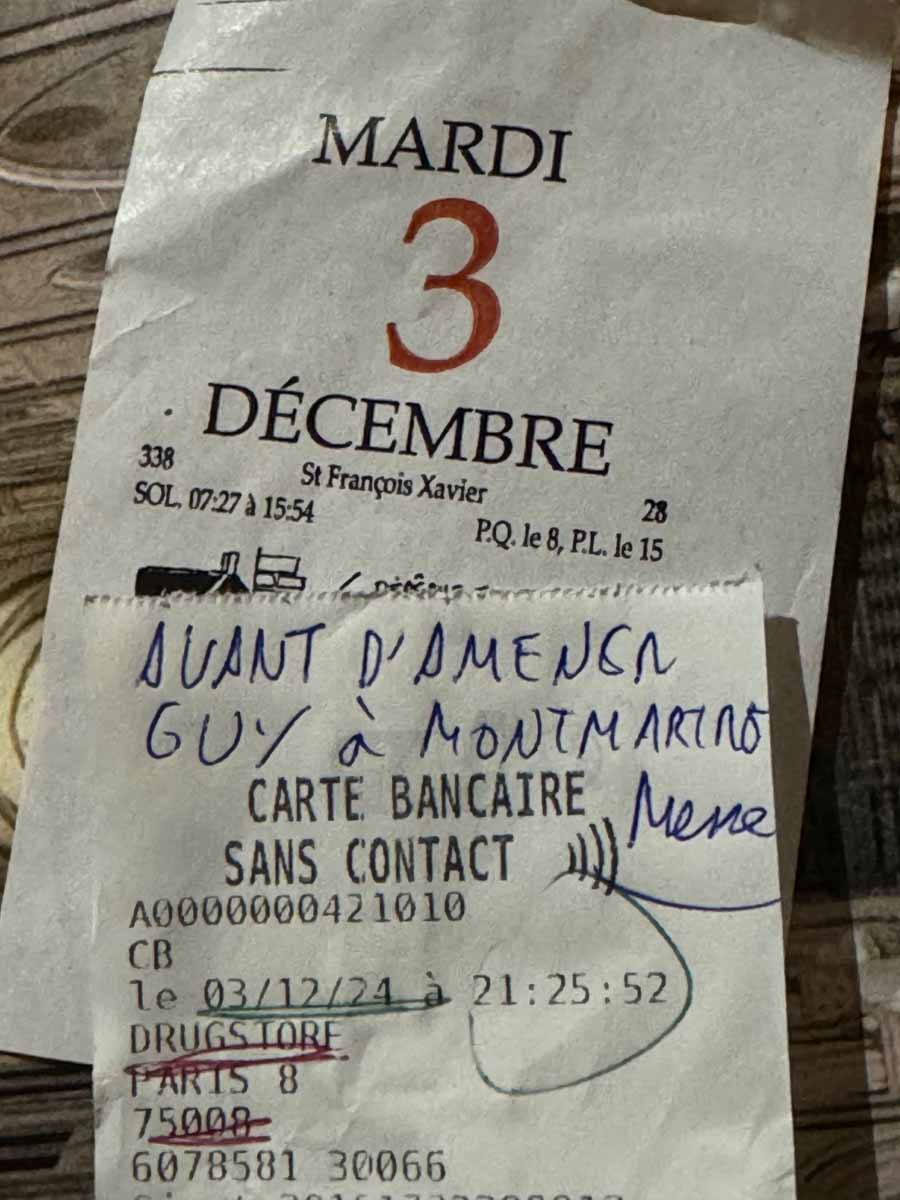 MARDI
3
DÉCEMBRE
338
St François Xavier
28
SOL. 07:27 à 15:54
P.Q. le 8, P.L. le 15
AVANT D'AMENER
GUY à MONTMARTRE
CARTE BANCAIRE
SANS CONTACT
A0000000421010
CB
le 03/12/24 à 21:25:52
DRUGSTORE
PARIS 8
75008
6078581 30066